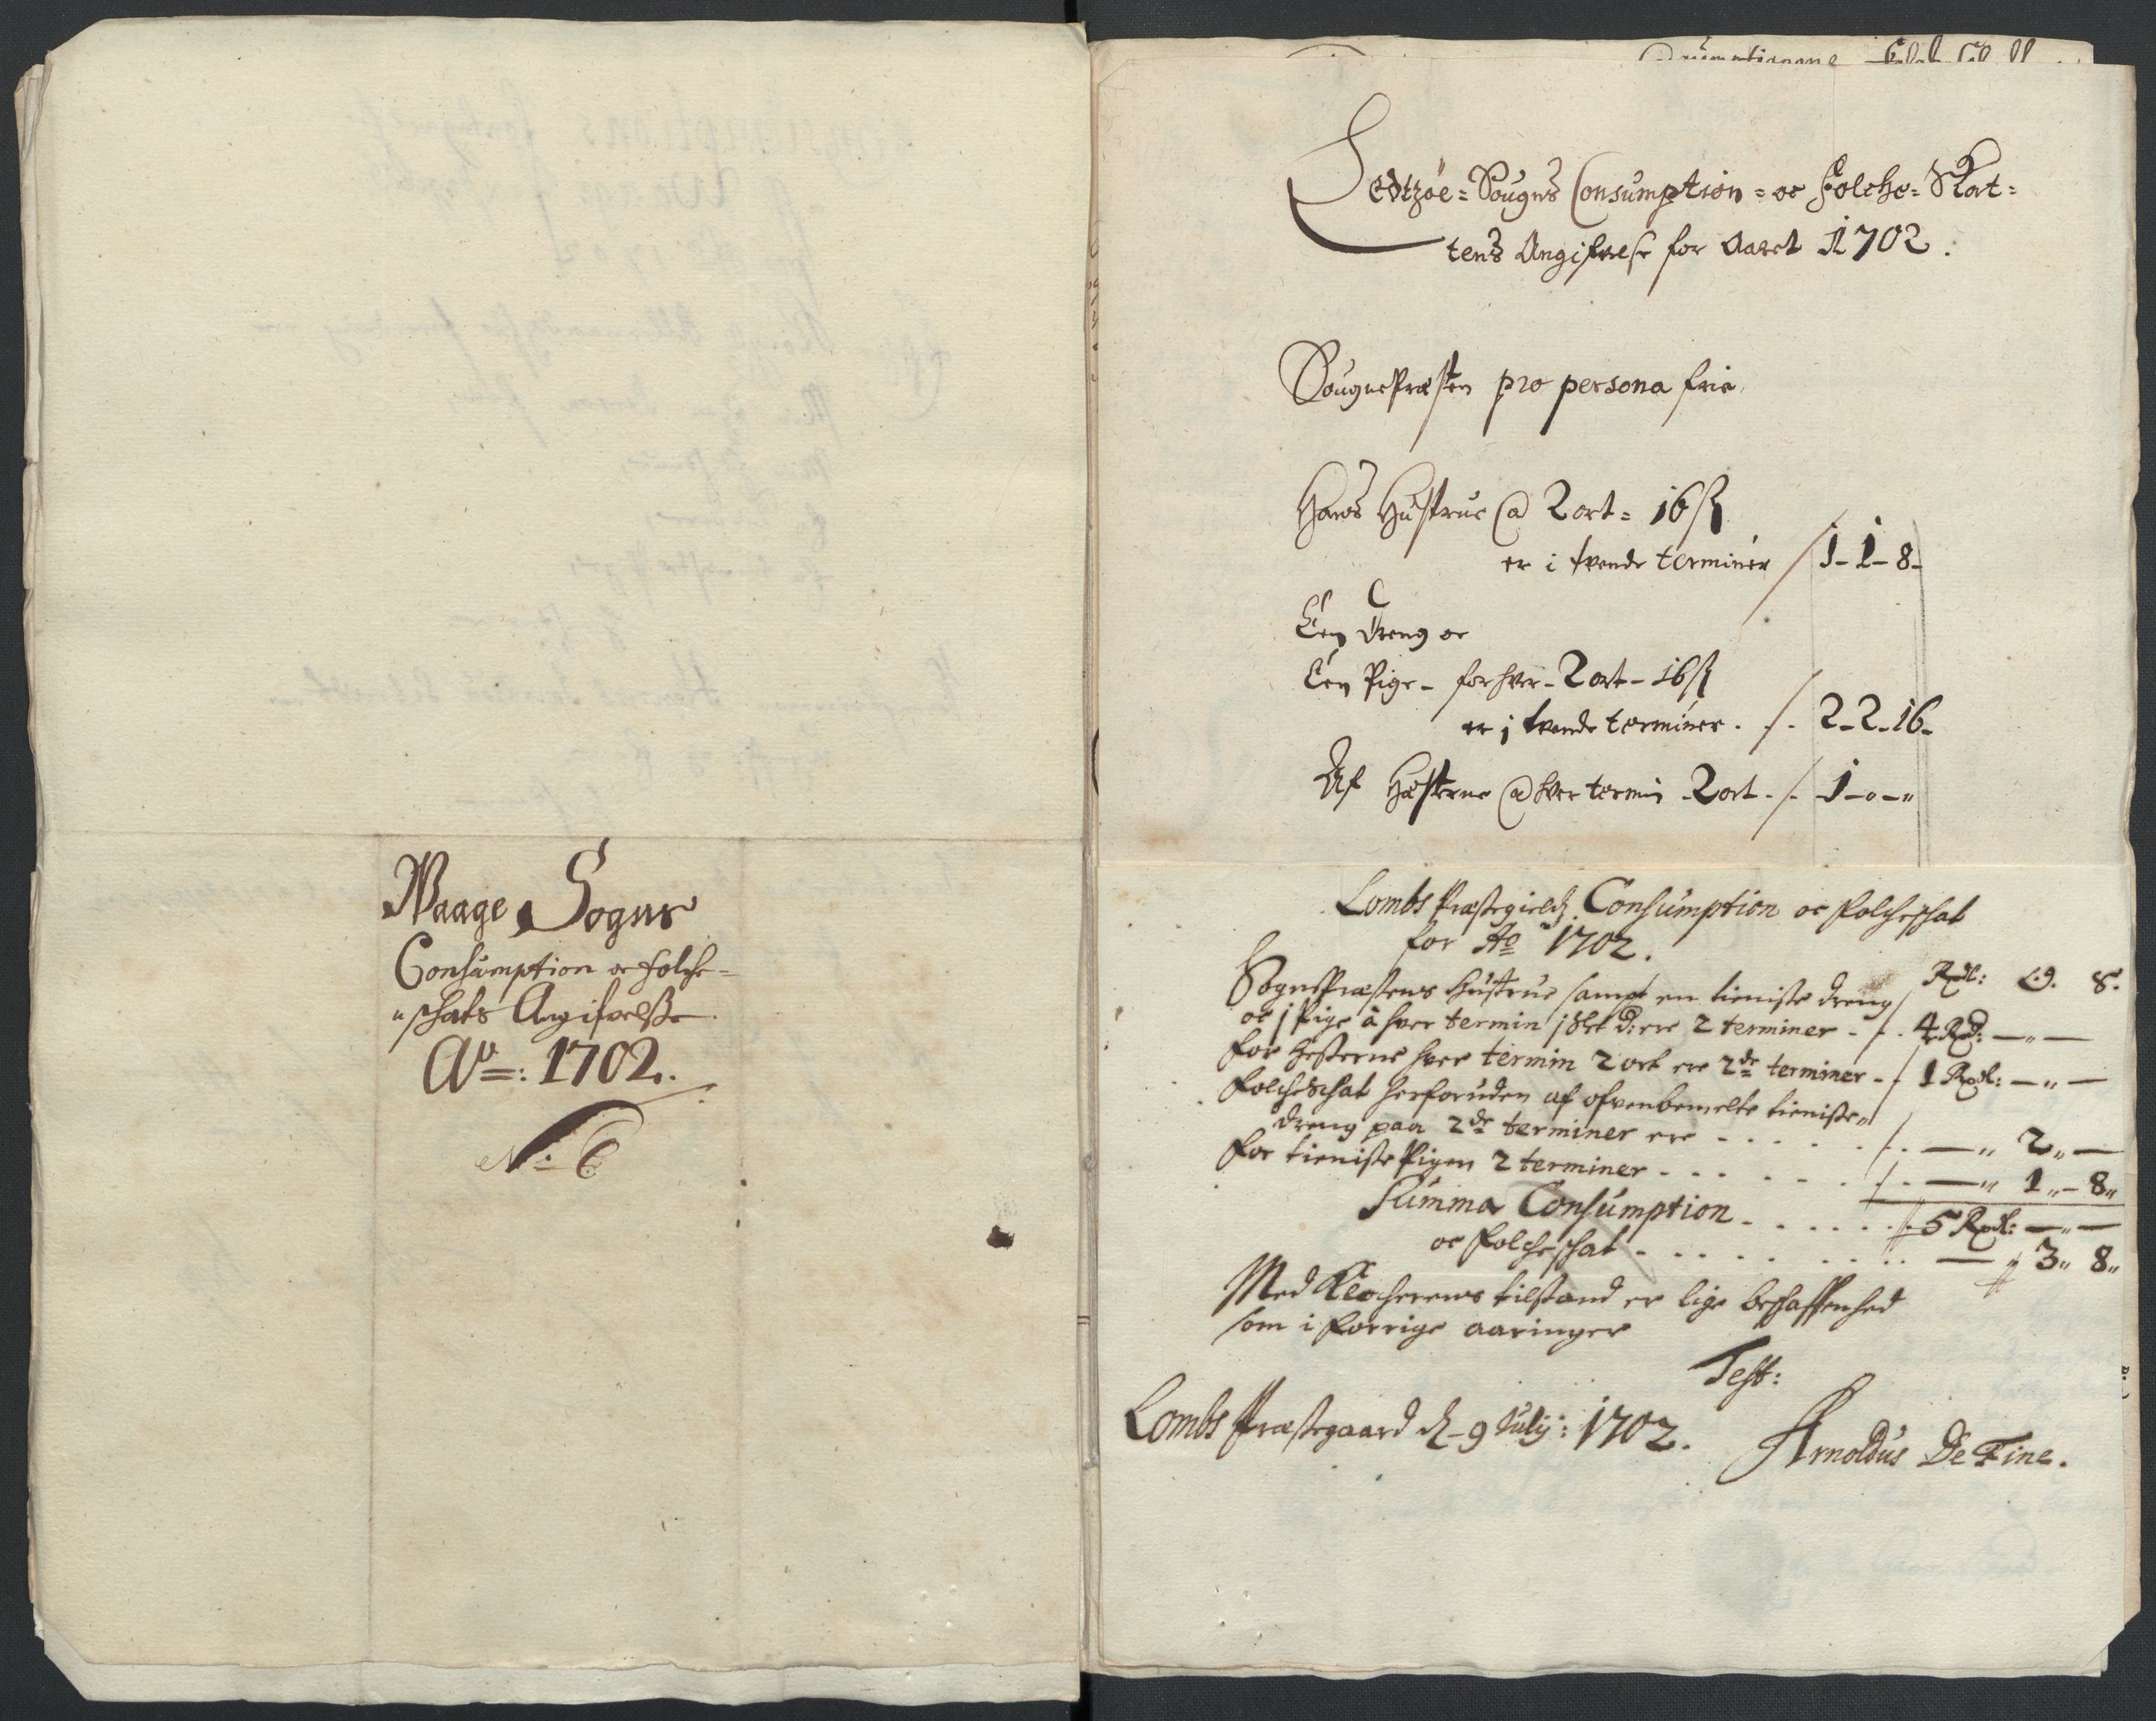 Waage Sogns
Consumption oc folche-
schats Angifvelsse
Ao: 1702.
No: 6
Sougns Consumption = oc folche = Skat =
tens Angifvelse for Aaret 1702.
Sougnepræsten pro persona frie
Hans Hustrue @ 2 ort = 16 ß
er i tvende terminer 1 - 1 - 8 -
Een dreng oc
Een Pige - for hver - 2 ort - 16 ß
er i tvende terminer . /. 2 - 2 - 16 -
Af Hæsterne @ hver termin 2 ort . /. 1 - o - "
Lombs Præstegield Consumption oc folcheschat
for Ao 1702.
Rdl: S.
Sognepræstens Hustrue sampt en tieniste dreng
oc j Pige à hver termin ere 2 terminer - - 4 Rd: — " —
for hesterne hver termin 2 ort ere 2de terminer - - 1 Rdl: — " —
folcheschat herforuden af ofvenbemelte tieniste
dreng paa 2de terminer ere - - - - — " 2 " —
for tieniste Pigen 2 terminer - - - - — " 1 " - 8 "
Summa Consumption - - - - 5 Rdl: — " —
oc folcheschat - - - - — " 3 " 8 "
Med Klocherens tilstand er lige beschaffenhed
som i forrige aaringer
Test:
Lombs Præstegaard d. 9 July: 1702.
Arnoldus De Fine.